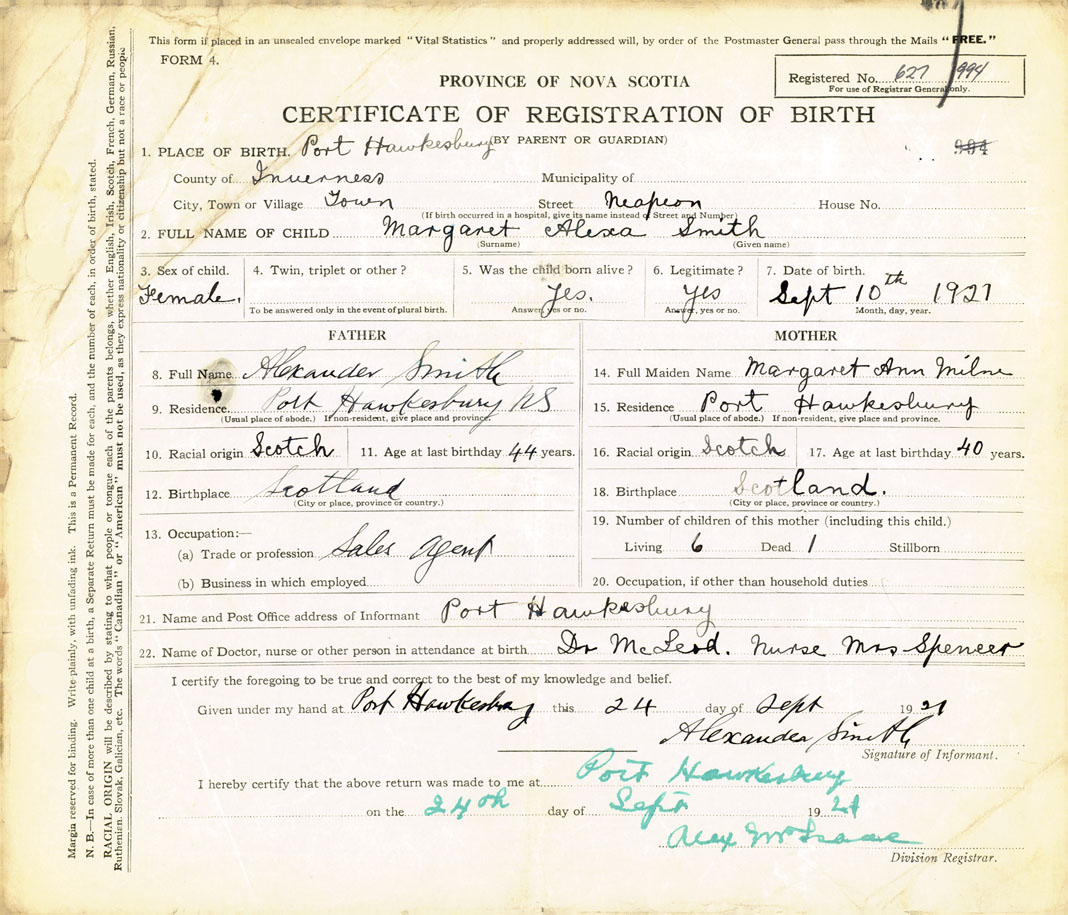 This form if placed in an unsealed envelope marked "Vital Statistics" and properly addressed will, by order of the Postmaster General pass through the Mails "FREE."
FORM 4.
Registered No. 627 994
For use of Registrar General only.
PROVINCE OF NOVA SCOTIA
CERTIFICATE OF REGISTRATION OF BIRTH
(BY PARENT OR GUARDIAN)
984
1. PLACE OF BIRTH. Port Hawkesbury
County of Inverness Municipality of
City, Town or Village Town Street Neapeon House No.
(If birth occurred in a hospital, give its name instead of Street and Number)
2. FULL NAME OF CHILD Margaret Alexa Smith
(Surname) (Given name)
3. Sex of child. 4. Twin, triplet or other? 5. Was the child born alive? 6. Legitimate? 7. Date of birth.
Female. Yes. Yes Sept 10th 1921
To be answered only in the event of plural birth. Answer, yes or no. Answer, yes or no. Month, day, year.
FATHER
8. Full Name Alexander Smith
9. Residence Port Hawkesbury NS
(Usual place of abode.) If non-resident, give place and province.
10. Racial origin Scotch 11. Age at last birthday 44 years.
12. Birthplace Scotland
(City or place, province or country.)
13. Occupation:—
(a) Trade or profession Sales Agent
(b) Business in which employed
MOTHER
14. Full Maiden Name Margaret Ann Milne
15. Residence Port Hawkesbury
(Usual place of abode.) If non-resident, give place and province.
16. Racial origin Scotch 17. Age at last birthday 40 years.
18. Birthplace Scotland.
(City or place, province or country.)
19. Number of children of this mother (including this child.)
Living 6 Dead 1 Stillborn
20. Occupation, if other than household duties
21. Name and Post Office address of Informant Port Hawkesbury
22. Name of Doctor, nurse or other person in attendance at birth Dr McLeod. Nurse Mrs Spencer
I certify the foregoing to be true and correct to the best of my knowledge and belief.
Given under my hand at Port Hawkesbury this 24 day of Sept 1921
Alexander Smith
Signature of Informant.
I hereby certify that the above return was made to me at Port Hawkesbury
on the 24th day of Sept 1921
Alex McIsaac
Division Registrar.
Margin reserved for binding. Write plainly, with unfading ink. This is a Permanent Record.
N. B.—In case of more than one child at a birth, a Separate Return must be made for each, and the number of each, in order of birth, stated.
RACIAL ORIGIN will be described by stating to what people or tongue each of the parents belongs, whether English, Irish, Scotch, French, German, Russian,
Ruthenian, Slovak, Galician, etc. The words "Canadian" or "American" must not be used, as they express nationality or citizenship but not a race or people